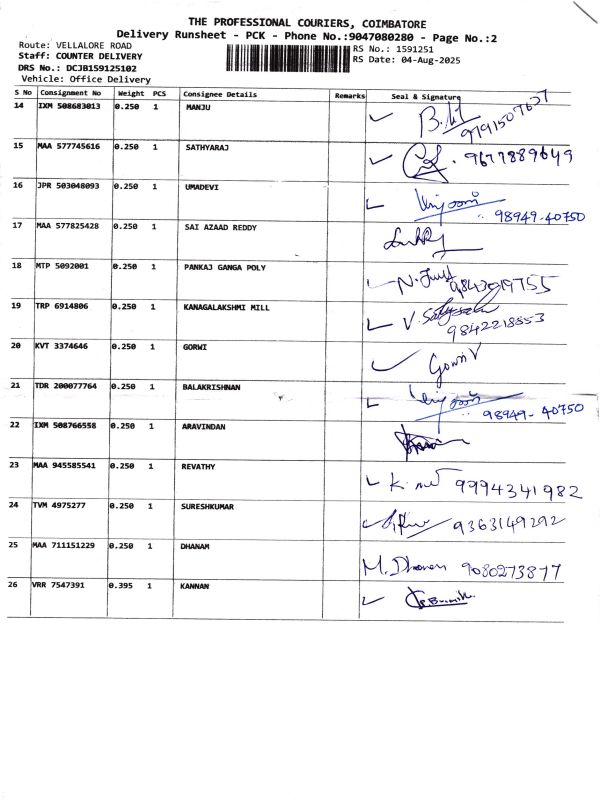 THE PROFESSIONAL COURIERS, COIMBATORE
Delivery Runsheet - PCK - Phone No.:9047080280 - Page No.:2
Route: VELLALORE ROAD
RS No.: 1591251
Staff: COUNTER DELIVERY
RS Date: 04-Aug-2025
DRS No.: DCJB159125102
Vehicle: Office Delivery
S No Consignment No Weight PCS Consignee Details Remarks Seal & Signature
14 IXM 508683013 0.250 1 MANJU 9791507627
15 MAA 577745616 0.250 1 SATHYARAJ 9677889649
16 JPR 503048093 0.250 1 UMADEVI 98949-40750
17 MAA 577825428 0.250 1 SAI AZAAD REDDY
18 MTP 5092001 0.250 1 PANKAJ GANGA POLY
19 TRP 6914806 0.250 1 KANAGALAKSHMI MILL 9842218553
20 KVT 3374646 0.250 1 GORWI Gowri V
21 TDR 200077764 0.250 1 BALAKRISHNAN 98949-40750
22 IXM 508766558 0.250 1 ARAVINDAN
23 MAA 945585541 0.250 1 REVATHY 9994341982
24 TVM 4975277 0.250 1 SURESHKUMAR 9363149292
25 MAA 711151229 0.250 1 DHANAM M. Dhanam 9080273877
26 VRR 7547391 0.395 1 KANNAN